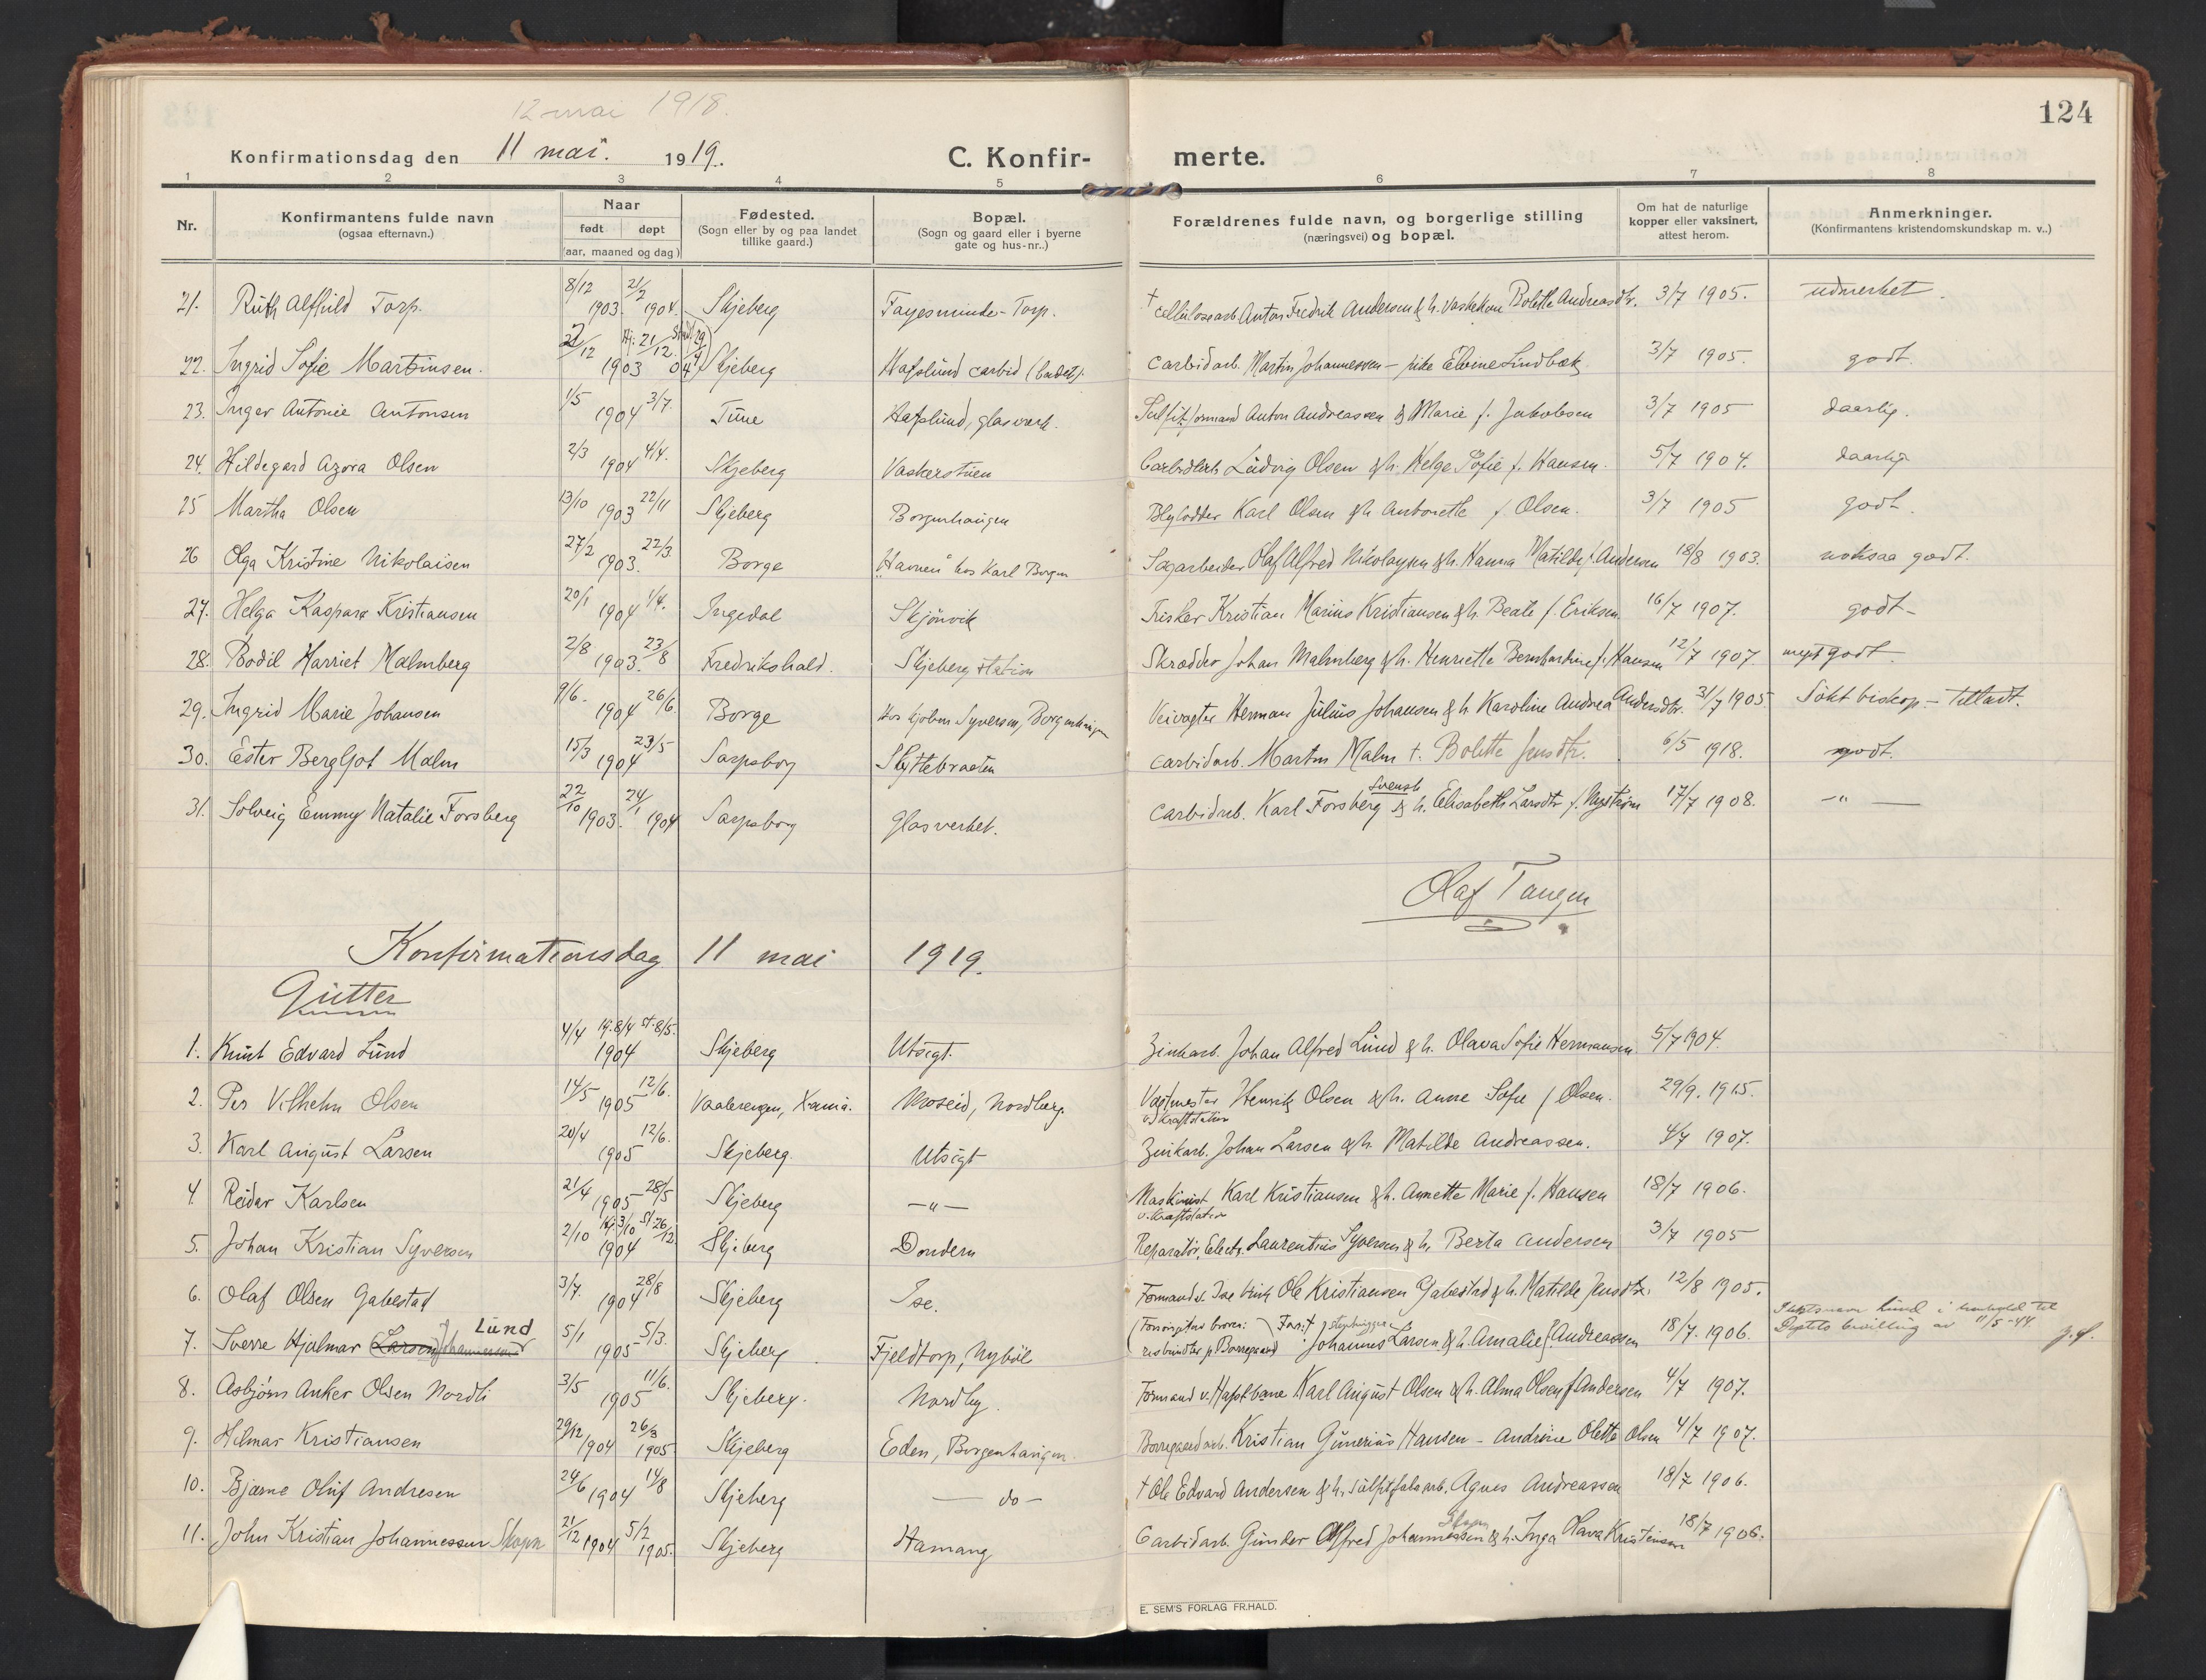 12 mai 1918.
124
Konfirmationsdag den 11 mai. 1919. C. Konfir- merte.
1 2 3 4 5 6 7 8
Nr. Konfirmantens fulde navn (ogsaa efternavn.) Naar født døpt (aar, maaned og dag) Fødested. (Sogn eller by og paa landet tillike gaard.) Bopæl. (Sogn og gaard eller i byerne gate og hus-nr..) Forældrenes fulde navn, og borgerlige stilling (næringsvei) og bopæl. Om hat de naturlige kopper eller vaksinert, attest herom. Anmerkninger. (Konfirmantens kristendomskundskap m. v..)
21. Ruth Alfhild Torp. 8/12 1903. 21/2 1904. Skjeberg Fayesminde-Torp. † Cellulosearb. Anton Fredrik Andersen & h. Bolette Andreasdtr. 3/7 1905. udmerket.
22. Ingrid Sofie Martinsen. 1903 04 Skjeberg Hafslund carbid Carbidarb. Martin Johannessen - pike Elvine Lindbæk 3/7 1905. godt.
23. Inger Antonie Antonsen 1/5 1904 3/7 Tune Hafslund, glasverk. Sulfitformand Anton Andreassen & Marie f. Jakobsen 3/7 1905 daarlig.
24. Hildegard Azora Olsen 2/3 1904 4/4. Skjeberg Vaskerstuen Carbidarb. Ludvig Olsen & h. Helge Sofie f. Hansen. 5/7 1904. daarlig
25 Martha Olsen 13/10 1903 22/11 Skjeberg Borgenhaugen Blylodder Karl Olsen & h. Antonette f. Olsen. 3/7 1905 godt.
26 Olga Kristine Nikolaisen 27/2 1903. 22/3 Borge "Havnen" hos Karl Borgen Sagarbeider Olaf Alfred Nikolaysen & h. Hanna Matilde f. Andersen 18/8 1903. noksaa godt.
27. Helga Kaspara Kristiansen 20/1 1904 1/4. Ingedal Skjønvik Fisker Kristian Marius Kristiansen & h. Beate f. Eriksen 16/7 1907. godt-
28. Bodil Harriet Malmberg 2/8 1903. 23/8 Fredrikshald. Skjeberg station Skrædder Johan Malmberg & h. Henriette Bernhardine f. Hansen 12/7 1907. meget godt.
29. Ingrid Marie Johansen 9/6- 1904 26/6. Borge Hos Syversen, Borgenhaugen Veivogter Herman Julius Johansen & h. Karoline Andrea Andersdtr. 31/7 1905. Søkt biskop. - Tillatt.
30. Ester Bergljot Malm 15/3 1904 23/5 Sarpsborg Skyttebraaten Carbidarb. Martin Malm †. Bolette Jensdtr. 6/5 1918. godt.
31. Solveig Emmy Natalie Forsberg 22/10 1903. 24/1 1904 Sarpsborg Glasverket. Carbidarb. Karl Forsberg svensk & h. Elisabeth Larsdtr f. Nystrøm 17/7 1908. -"-
Olaf Tangen
Konfirmationsdag 11 mai 1919.
Gutter
1. Knut Edvard Lund 4/4 Hj. 8/4 St. 8/5. 1904 Skjeberg Utsigt. Zinkarb. Johan Alfred Lund & h. Olava Sofie Hermansen. 5/7 1904.
2. Per Vilhelm Olsen 14/5 1905 12/6. Vaalerengen, Xania. Moseid, Nordberg. Vagtmester v/ Kraftstation Henrik Olsen & h. Anne Sofie f. Olsen. 29/9. 1915.
3. Karl August Larsen 20/4 1905 12/6. Skjeberg. Utsigt Zinkarb. Johan Larsen & h. Matilde Andreassen. 4/7 1907.
4. Reidar Karlsen 21/4 1905 28/5 Skjeberg -"- Maskinist v. Kraftstation Karl Kristiansen & h. Annette Marie f. Hansen 18/7 1906.
5. Johan Kristian Syversen 2/10 Hj. 3/10 St. 26/12 1904 Skjeberg Dondern Reparatør, Electr. Laurentius Syversen & h. Berta Andersen 3/7 1905
6. Olaf Olsen Gabestad 3/7. 1904 28/8 Skjeberg Ise. Formand v. Ise bruk Ole Kristiansen Gabestad & h. Matilde Jensdtr. 12/8 1905.
7. Sverre Hjalmar (Larsen) Johannessen Lund 5/1 1905 5/3. Skjeberg. Fjeldtorp, Nybøl (Forsørgerens broren: risbinder p. Borregaard) Forsit. skopbrygger Johannes Larsen & h. Amalie f. Andreassen 18/7. 1906. Slektsnavn Lund i henhold til Deptets bevilling av 11/5-44
8. Asbjørn Anker Olsen Nordli 3/5 1905 11/6. Skjeberg. Nordby. Formand v. Hafsl. bane Karl August Olsen & h. Alma Olsen f. Andersen 4/7 1907.
9. Hilmar Kristiansen 29/12 1904 26/3 1905 Skjeberg Eden, Borgenhaugen. Borregaardarb. Kristian Gunerius Hansen - Andrine Olette Olsen 4/7 1907.
10. Bjarne Oluf Andresen 24/6 1904 14/8 Skjeberg - do - † Ole Edvard Andersen & h. sulfitfabr.arb. Agnes Andreassen 18/7 1906.
11. John Kristian Johannessen Skogen 21/12 1904 5/2 1905. Skjeberg Hamang Carbidarb. Gunder Alfred Johannessen Skogen & h. Inga Olava Kristiansen 18/7 1906.
E. SEM'S FORLAG FR.HALD.